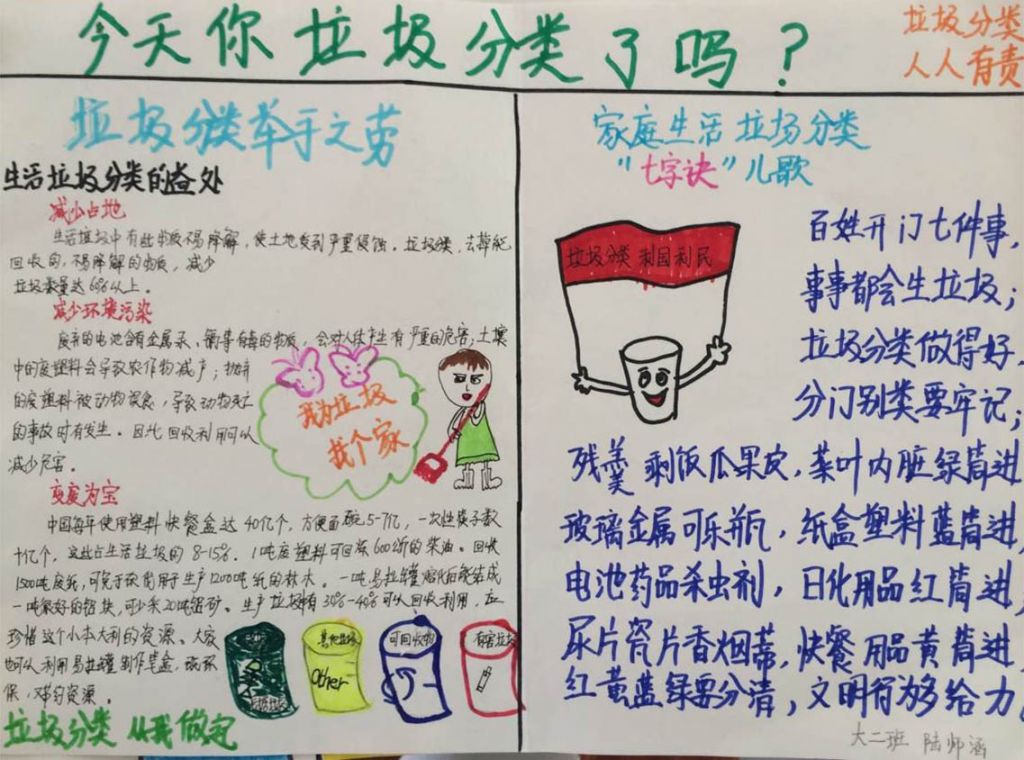 今天你垃圾分类了吗?
垃圾分类
人人有责
垃圾分类牵手之劳
生活垃圾分类的益处
减少占地
生活垃圾中有些物质不易降解,使土地受到严重侵蚀。垃圾分类,去掉能
回收的,不易降解的物质,减少
垃圾数量达60%以上。
减少环境污染
废弃的电池含有金属汞、镉等有毒的物质,会对人体产生有严重的危害;土壤
中的废塑料会导致农作物减产;抛弃
的废塑料被动物误食,导致动物死亡
的事故时有发生。因此回收利用可以
减少危害。
我为垃圾
找个家
变废为宝
中国每年使用塑料快餐盒达40亿个,方便面碗5-7亿,一次性筷子数
十亿个,这些占生活垃圾的8-15%。1吨废塑料可回炼600斤的柴油。回收
1500吨废纸,可免于砍伐用于生产1200吨纸的林木。一吨易拉罐熔化后能结成
一吨很好的铝块,可少采20吨铝矿。生产垃圾有30%-40%可以回收利用,应
珍惜这个小本大利的资源。大家
也可以利用易拉罐制作笔盒,既环
保,又节约资源。
其他垃圾
Other
可回收物
有害垃圾
垃圾分类 从我做起
家庭生活垃圾分类
“七字诀”儿歌
垃圾分类 利国利民
百姓开门七件事,
事事都会生垃圾;
垃圾分类做得好,
分门别类要牢记;
残羹剩饭瓜果皮,菜叶内脏绿筒进
玻璃金属可乐瓶,纸盒塑料蓝筒进,
电池药品杀虫剂,日化用品红筒进,
尿片瓷片香烟蒂,快餐用品黄筒进
红黄蓝绿要分清,文明行为够给力。
大二班 陆师涵